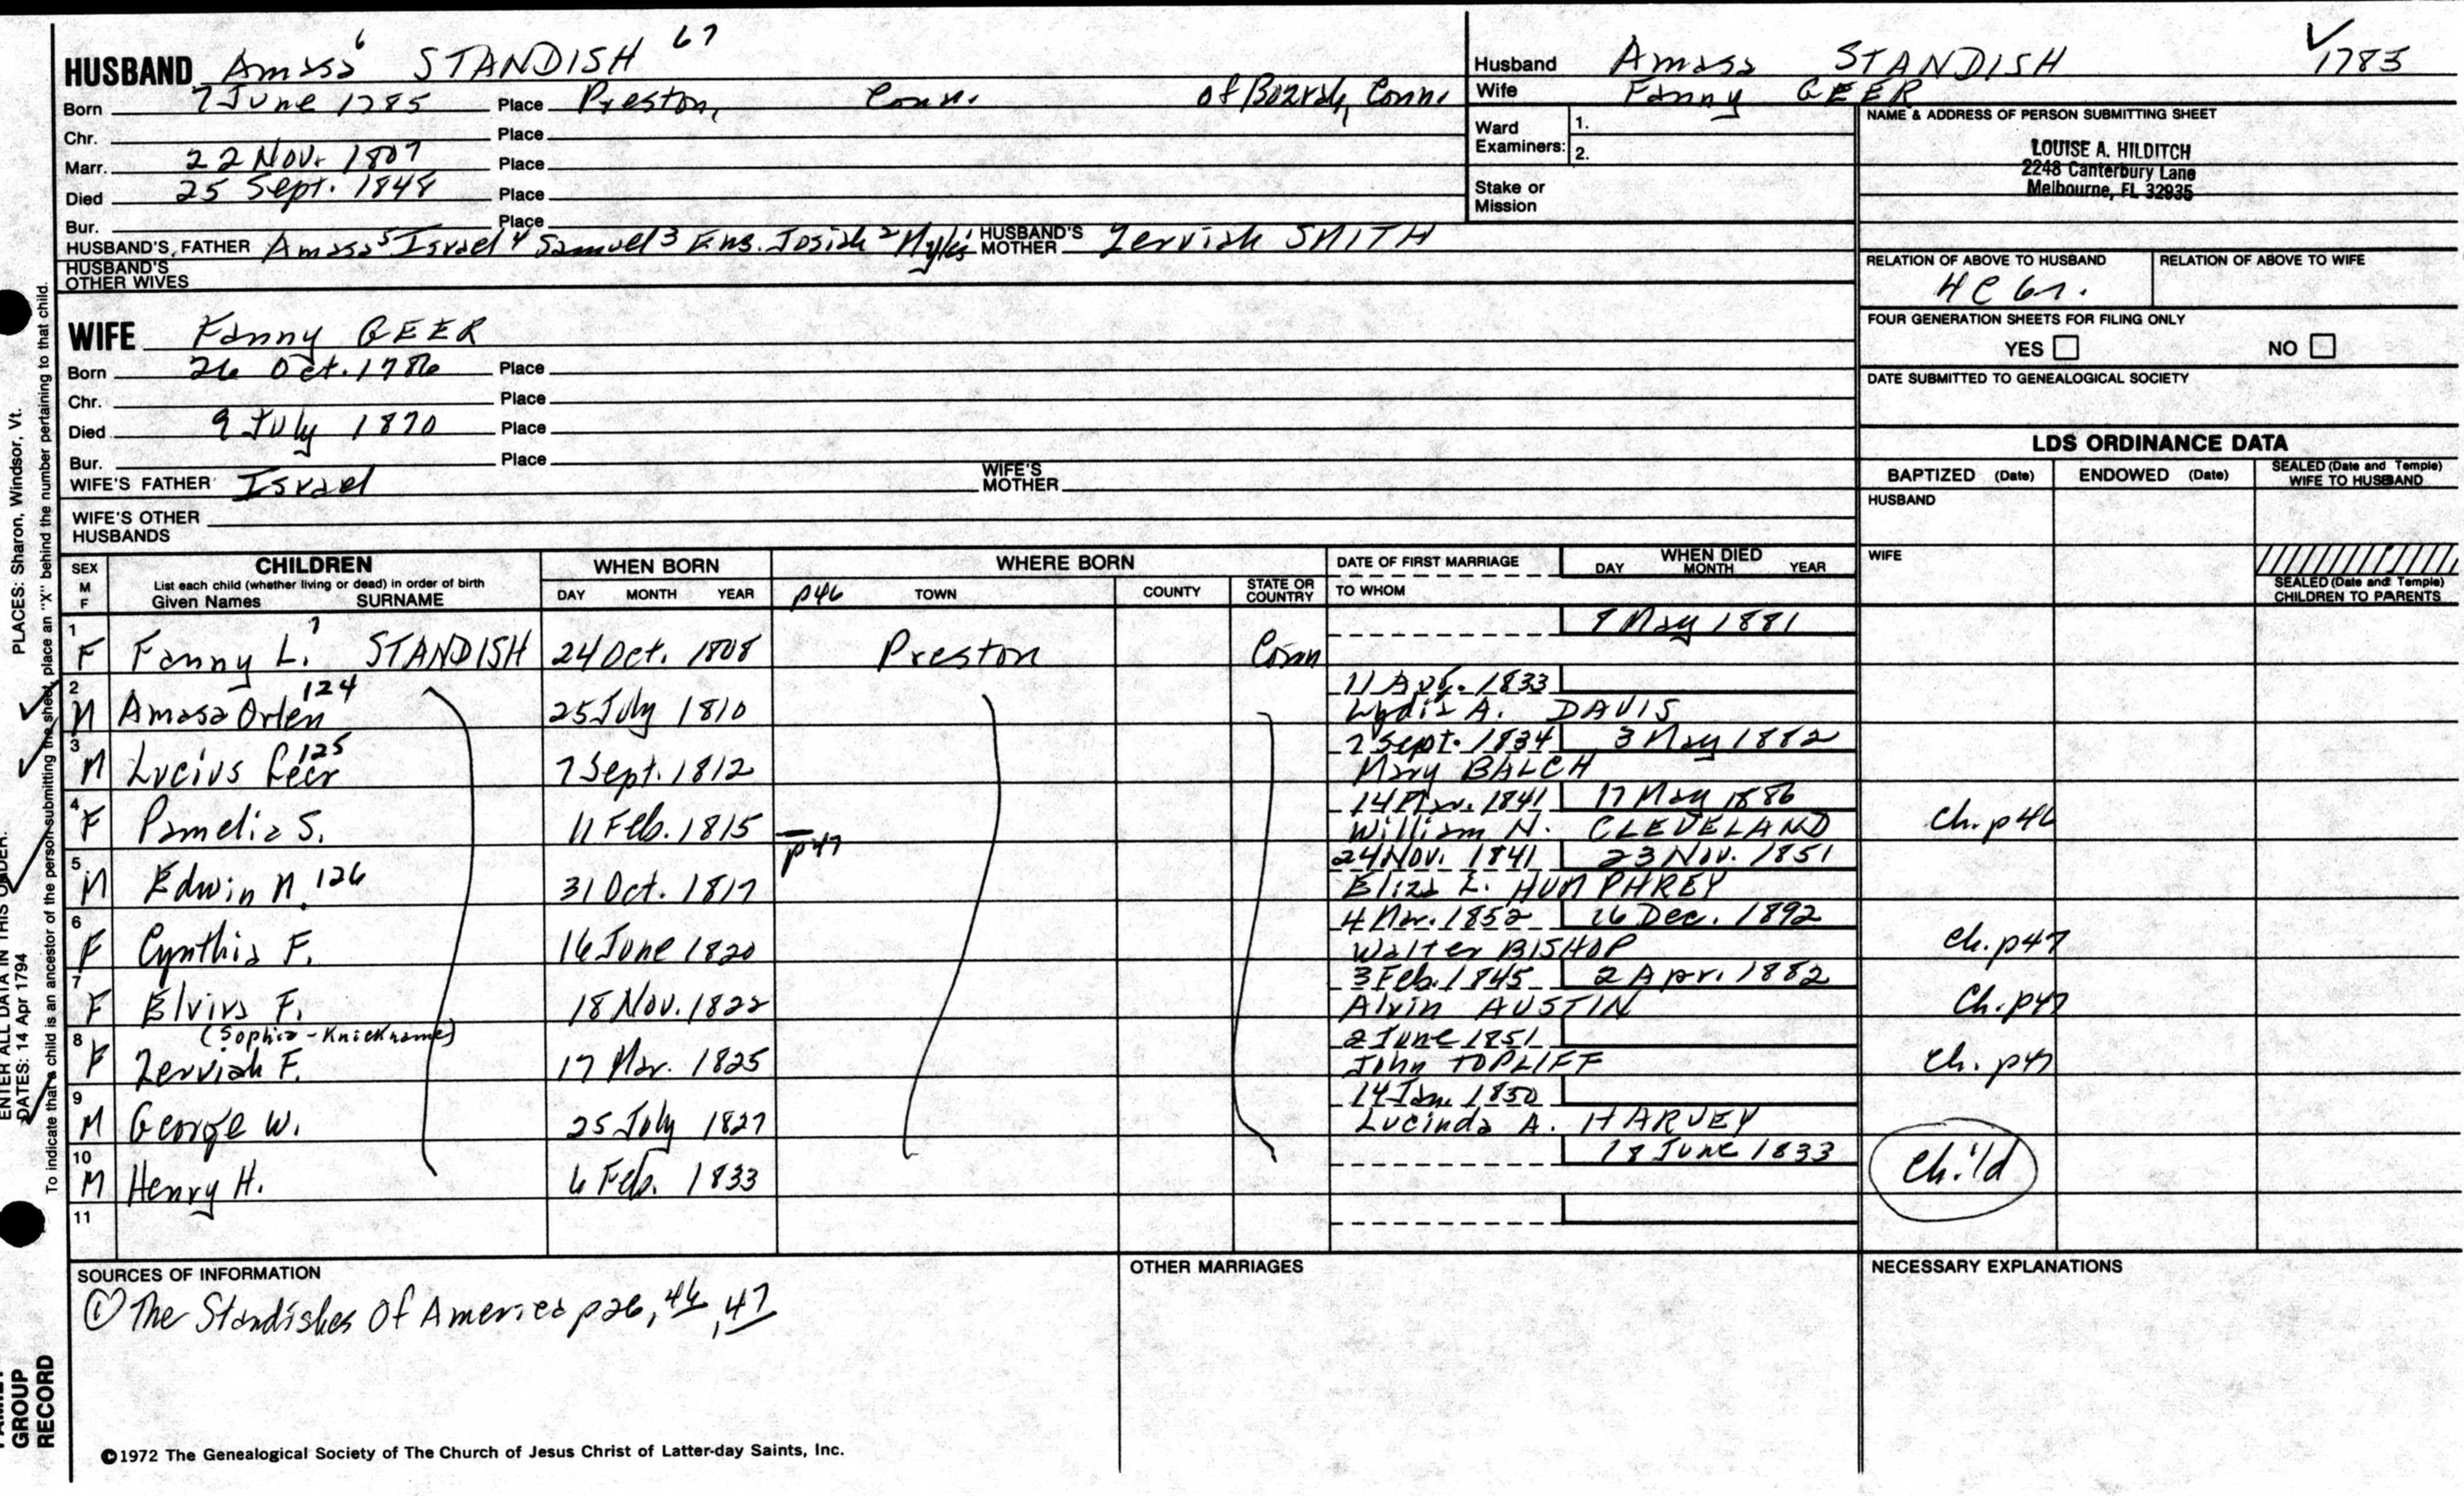 HUSBAND Amasa 6 STANDISH 67
Born 7 June 1785 Place Preston, Conn. of Bozrah, Conn.
Chr. Place
Marr. 22 Nov. 1807 Place
Died 25 Sept. 1848 Place
Bur. Place
HUSBAND'S FATHER Amasa 5 Israel 4 Samuel 3 Ens. Josiah 2 Myles 1 HUSBAND'S MOTHER Zerviah SMITH
HUSBAND'S OTHER WIVES
WIFE Fanny GEER
Born 26 Oct. 1786 Place
Chr. Place
Died 9 July 1870 Place
Bur. Place
WIFE'S FATHER Israel WIFE'S MOTHER
WIFE'S OTHER HUSBANDS
Husband Amasa STANDISH 1785
Wife Fanny GEER
Ward Examiners: 1. 2.
Stake or Mission
NAME & ADDRESS OF PERSON SUBMITTING SHEET
LOUISE A. HILDITCH
2248 Canterbury Lane
Melbourne, FL 32935
RELATION OF ABOVE TO HUSBAND RELATION OF ABOVE TO WIFE
4C6r.
FOUR GENERATION SHEETS FOR FILING ONLY
YES NO
DATE SUBMITTED TO GENEALOGICAL SOCIETY
LDS ORDINANCE DATA
BAPTIZED (Date) ENDOWED (Date) SEALED (Date and Temple) WIFE TO HUSBAND
HUSBAND
WIFE
SEALED (Date and Temple) CHILDREN TO PARENTS
SEX M F CHILDREN List each child (whether living or dead) in order of birth Given Names SURNAME
WHEN BORN DAY MONTH YEAR
WHERE BORN p46 TOWN COUNTY STATE OR COUNTRY
DATE OF FIRST MARRIAGE TO WHOM
WHEN DIED DAY MONTH YEAR
1 F Fanny L. 7 STANDISH 24 Oct. 1808 Preston Conn 9 May 1881
2 M Amasa Orlen 124 25 July 1810 11 Aug. 1833 Lydia A. DAVIS
3 M Lucius Geer 125 7 Sept. 1812 7 Sept. 1834 3 May 1882 Mary BALCH
4 F Pamelia S. 11 Feb. 1815 14 Mar. 1841 17 May 1886 William N. CLEVELAND ch. p46
p47
5 M Edwin N. 126 31 Oct. 1817 24 Nov. 1841 23 Nov. 1851 Eliza L. HUMPHREY
6 F Cynthia F. 16 June 1820 4 Mar. 1852 26 Dec. 1892 Walter BISHOP ch. p47
7 F Elvira F. 18 Nov. 1822 3 Feb. 1845 2 Apr. 1882 Alvin AUSTIN Ch. p47
(Sophia - Knickname)
8 F Zerviah F. 17 Mar. 1825 2 June 1851 John TOPLIFF ch. p47
9 M George W. 25 July 1827 14 Jan. 1850 Lucinda A. HARVEY
10 M Henry H. 6 Feb. 1833 18 June 1833 Child
11
SOURCES OF INFORMATION
① The Standishes Of America p26, 46, 47
OTHER MARRIAGES
NECESSARY EXPLANATIONS
©1972 The Genealogical Society of The Church of Jesus Christ of Latter-day Saints, Inc.
PLACES: Sharon, Windsor, Vt.
To indicate that a child is an ancestor of the person submitting the sheet, place an "X" behind the number pertaining to that child.
ENTER ALL DATA IN THIS ORDER:
DATES: 14 Apr 1794
FAMILY GROUP RECORD